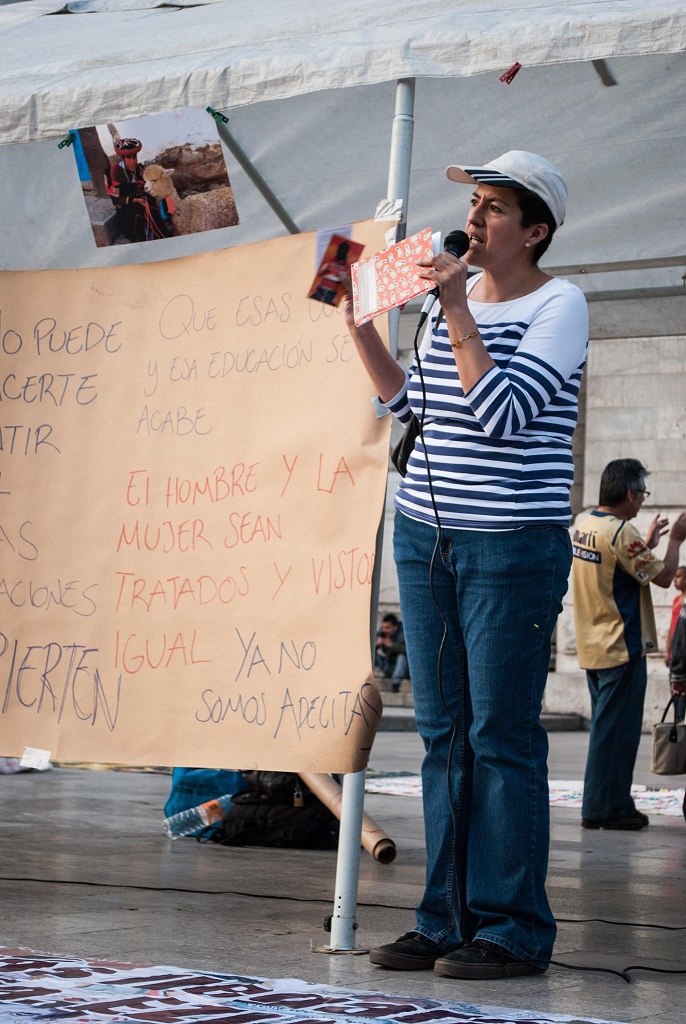 O PUEDE
CERTE
TIR
AS
ACIONES
PIERTEN
QUE ESAS
Y ESA EDUCACIÓN SE
ACABE
El HOMBRE Y LA
MUJER SEAN
TRATADOS Y VISTOS
IGUAL YA NO
SOMOS ADELITAS